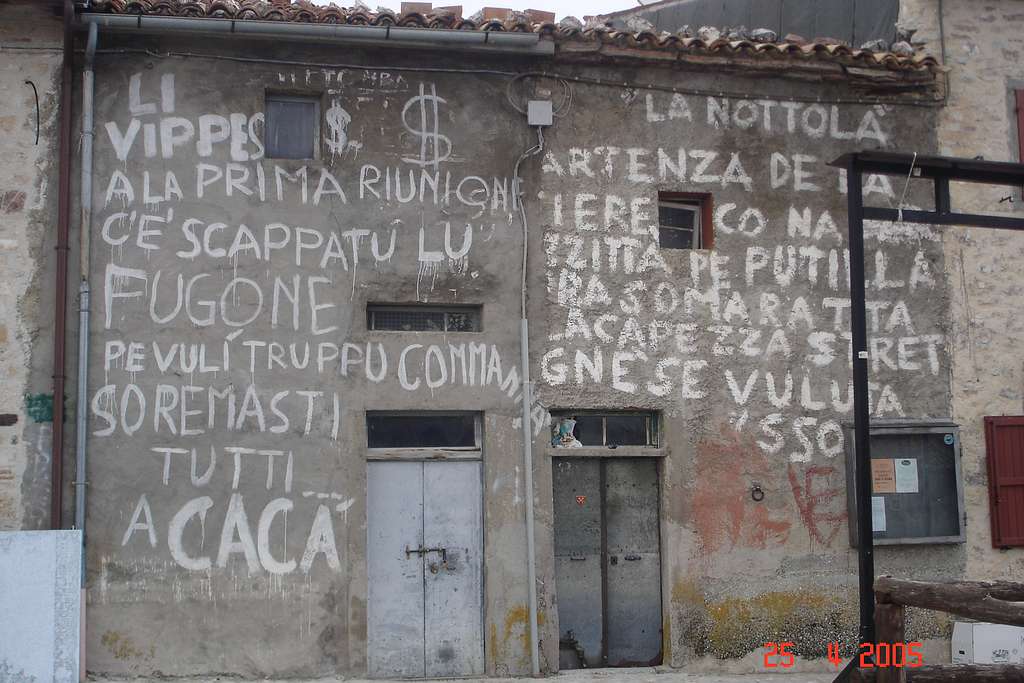 LI
VIPPES $ $
A LA PRIMA RIUNIONE
C'È SCAPPATU LU
FUGONE
PE VULÍ TRUPPU COMMANNA
SO REMASTI
TUTTI
A CACÀ
LA NOTTOLA
ARTENZA DE
IERE, CO NA
ZZITTA PE PUTILLA
SOMARATTA
ACAPEZZA STRET
GNE SE VULUTA
'SSO
25 4 2005